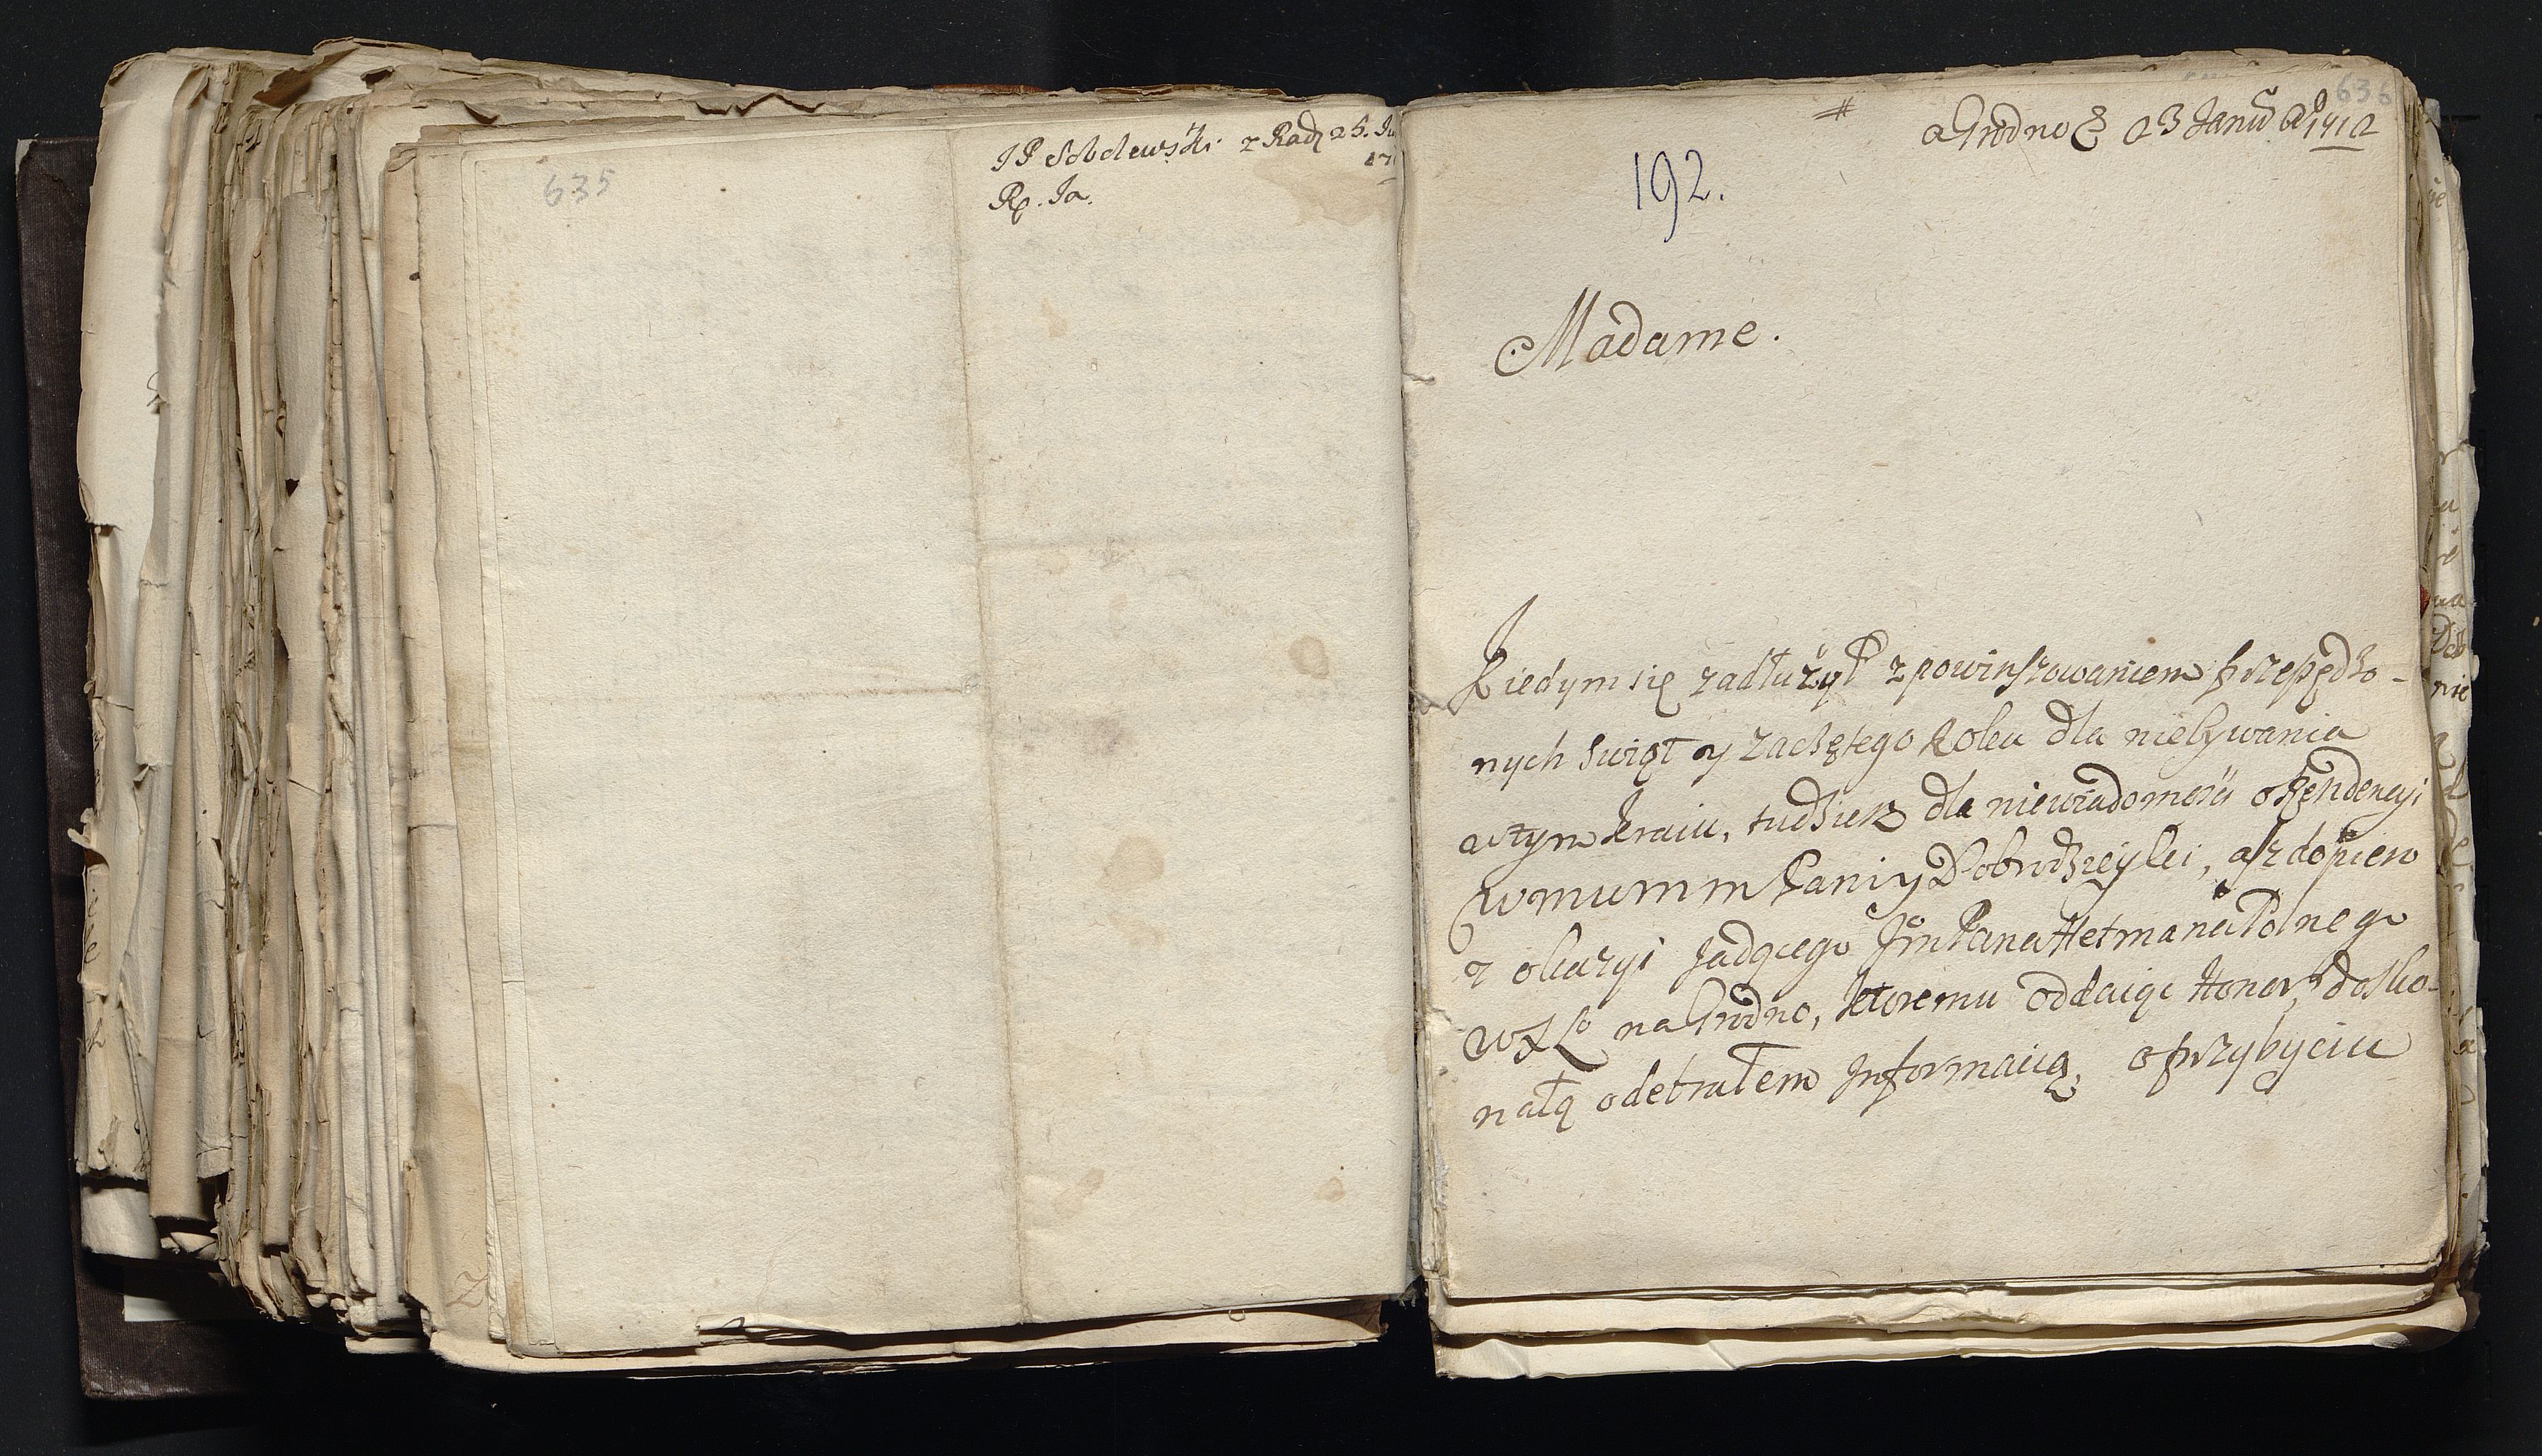 635
JP Sobolewski z Radz 25. Ju
17
Rp. Ja.
636
#
a Grodno 23 Janu Ao 1712
192.
Madame.
Kiedym się zadłużył z powinszowaniem przepędzo-
nych swiąt y zaczętego Roku dla niebywania
w tym kraiu, tudziesz dla niewiadomosci o Rezydencyi
WMMM Paniy Dobrodzieyki, asz dopiero
z okazyi Jadącego Jm Pana Hetmana Polnego
WXL na Grodno, ktoremu oddaiąc Honor, dosko-
nałą odebrałem Jnformacią, o przybyciu